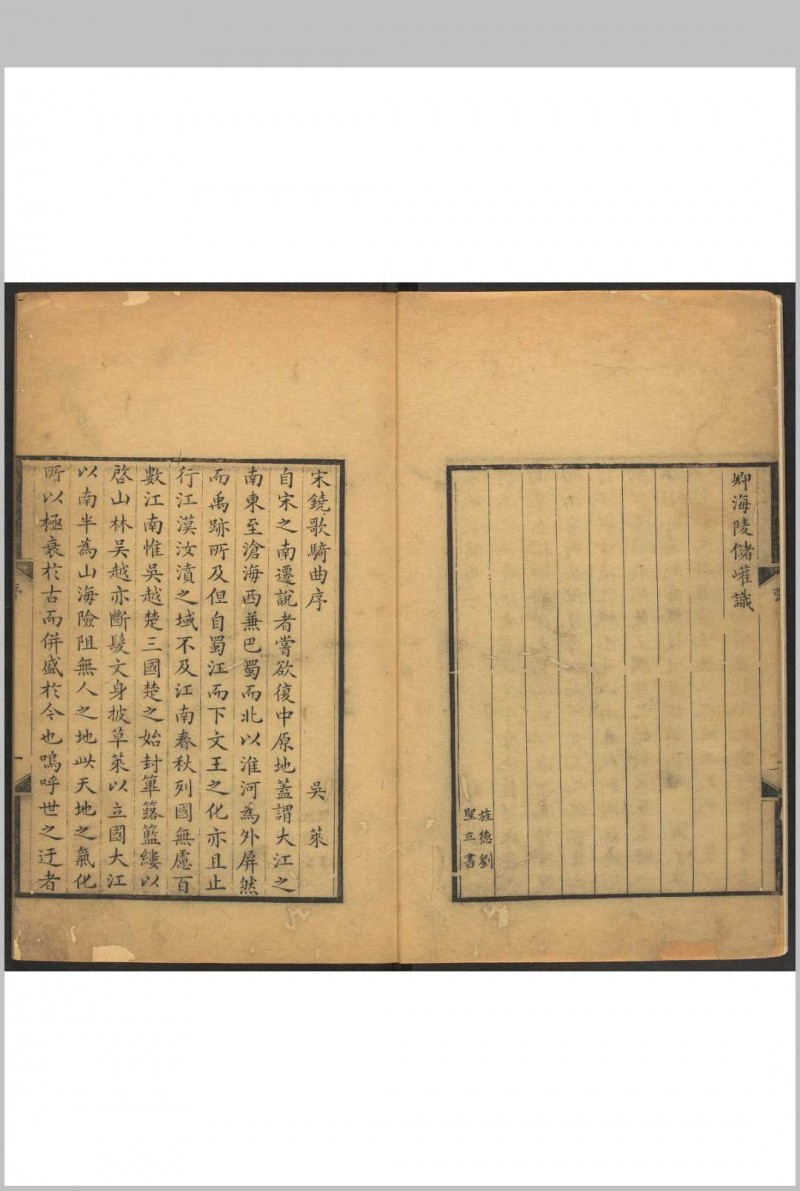 卿海陵儲巏識
旌德劉
聖立書
宋鐃歌騎曲序
吳萊
自宋之南遷說者嘗欲復中原地蓋謂大江之
南東至滄海西蕪巴蜀而北以淮河為外屏然
而禹跡所及但自蜀江而下文王之化亦且止
行江漢汝濆之域不及江南春秋列國無慮百
數江南惟吳越楚三國楚之始封篳簬籃縷以
啓山林吳越亦斷髮文身披草萊以立國大江
以南半為山海險阻無人之地此天地之氣化
所以極衰於古而併盛於今也嗚呼世之迂者
序
一